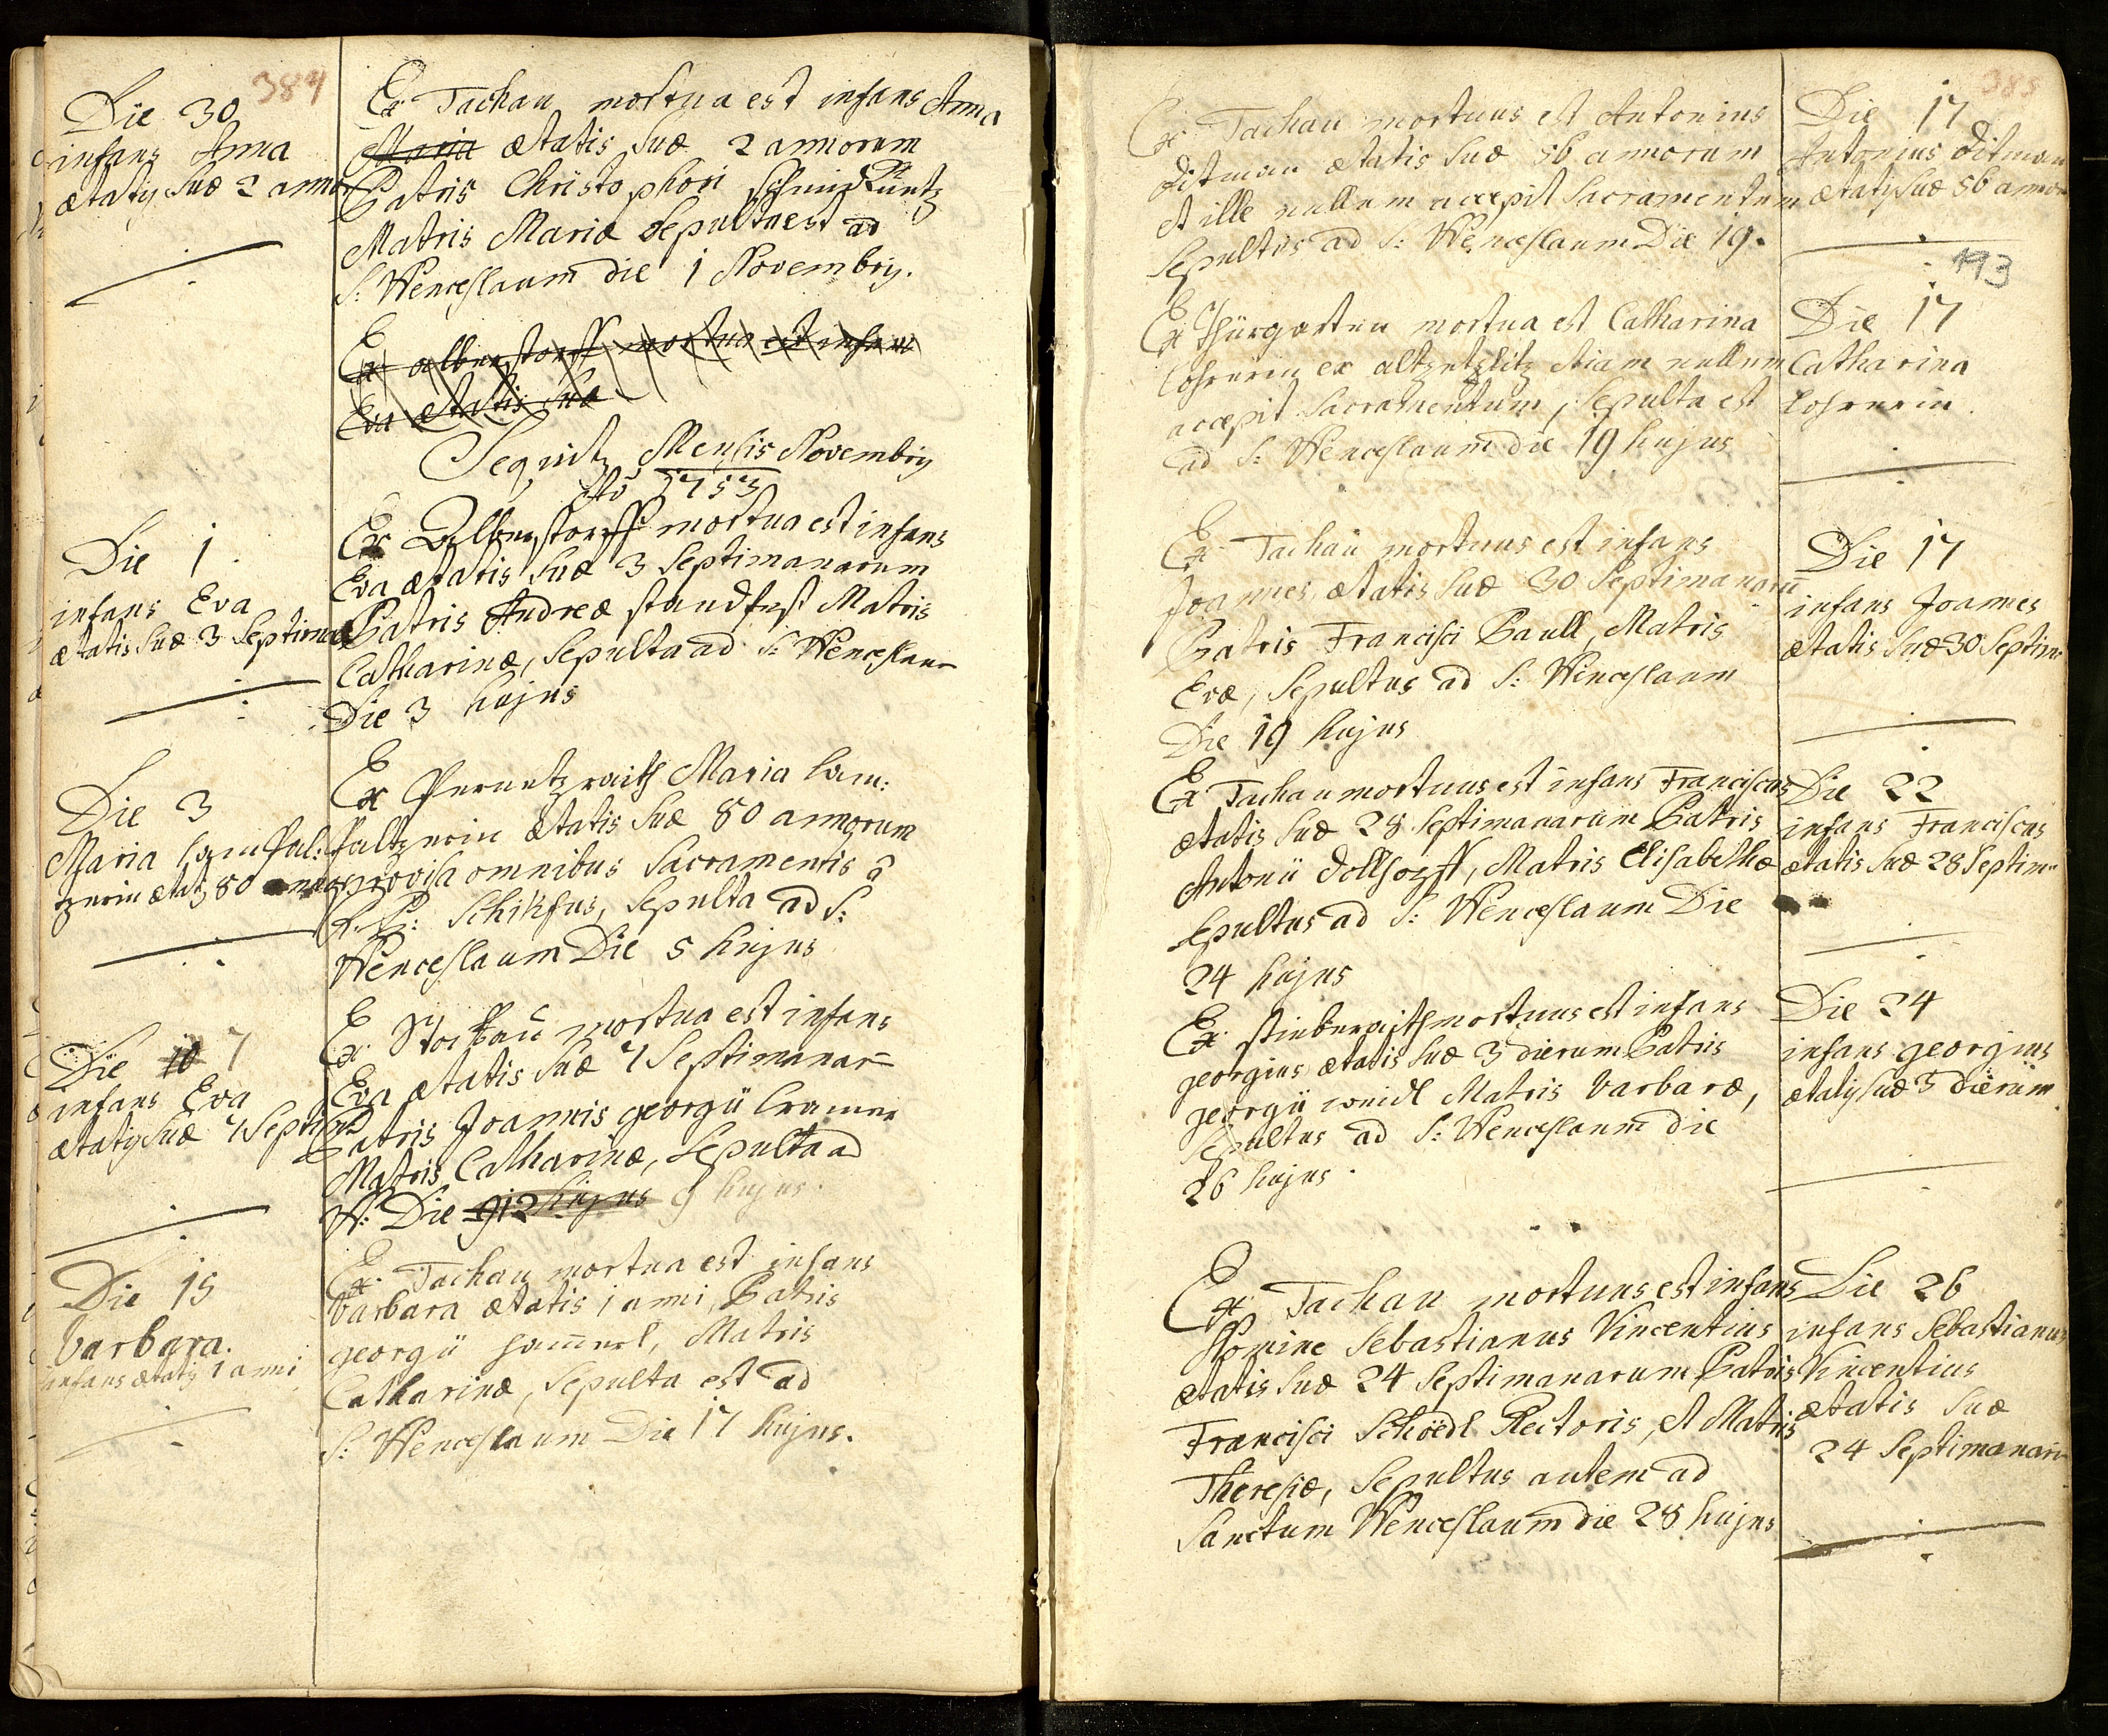 384
Die 30
infans Anna
ætatis suæ 2 anno
Ex Tachau mortua est infans Anna
Maria ætatis suæ 2 annorum
Patris Christophori
Matris Mariæ Sepulta est ad
S: Wenceslaum die 1 Novembris.
Ex albenstorff mortua est infans
Eva ætatis suæ
Sequitur Mensis Novembris
Ao 1753
Die 1
infans Eva
ætatis suæ 3 Septima
Ex Albenstorff mortua est infans
Eva ætatis suæ 3 Septimanarum
Patris Andreæ standfest Matris
Catharinæ, Sepulta ad S: Wenceslaum
Die 3 hujus
Die 3
Maria lamfal:
tzerin ætatis 80 annor
Ex Pernetzraith Maria lam:
faltzerin ætatis suæ 80 annorum
provisa omnibus Sacramentis â
R. P: Schikfus, Sepulta ad S:
Wenceslaum Die 5 hujus
Die 10 7
infans Eva
ætatis suæ 7 Septim
Ex Stockau mortua est infans
Eva ætatis suæ 7 Septimanar
Patris Joannis georgii Cramer
Matris Catharinæ, Sepulta ad
W: Die 912 hujus 9 hujus.
Die 15
Barbara.
infans ætatis 1 anni
Ex Tachau mortua est infans
Barbara ætatis 1 anni, Patris
georgii ham̄erl, Matris
Catharinæ, Sepulta est ad
S: Wenceslaum Die 17 hujus.
385
Ex Tachau mortuus est Antonius
Ditman ætatis suæ 56 annorum
et ille nullum accepit Sacramentum
Sepultus ad S: Wenceslaum Die 19.
Die 17
Antonius Ditman
ætatis suæ 56 annor
193
Ex Thürgarten mortua est Catharina
Lohrerin ex altzetzlitz etiam nullum
accepit Sacramentum, Sepulta est
ad S: Wenceslaum die 19 hujus
Die 17
Catharina
Lohrerin.
Ex Tachau mortuus est infans
Joannes, ætatis suæ 30 Septimanarū
Patris Francisci Paull, Matris
Evæ, Sepultus ad S: Wenceslaum
Die 19 hujus
Die 17
infans Joannes
ætatis suæ 30 Septim
Ex Tachau mortuus est infans Franciscus
ætatis suæ 28 Septimanarum Patris
Antonii Dollhopff, Matris Elisabethæ
Sepultus ad S: Wenceslaum Die
24 hujus
Die 22
infans Franciscus
ætatis suæ 28 Septim
Ex stieberaith mortuus est infans
georgius ætatis suæ 3 dierum Patris
georgii weidl Matris Barbaræ,
Sepultus ad S: Wenceslaum die
26 hujus.
Die 24
infans georgius
ætatis suæ 3 dierum
Ex Tachau mortuus est infans
Nomine Sebastianus Vincentius
ætatis suæ 24 Septimanarum Patris
Francisci Schöedl Rectoris, et Matris
Theresiæ, Sepultus autem ad
Sanctum Wenceslaum die 28 hujus
Die 26
infans Sebastianus
Vincentius
ætatis suæ
24 Septimanarū